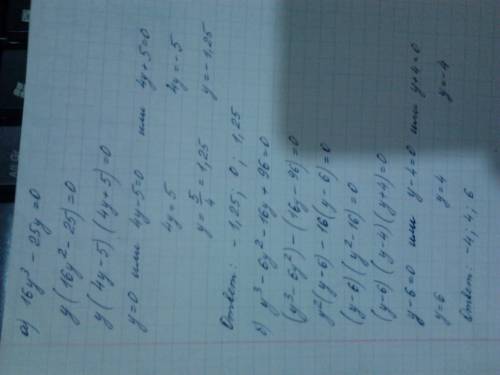 а) 16y³ - 25y = 0
y(16y² - 25) = 0
y(4y-5)(4y+5) = 0
y=0 или 4y-5=0 или 4y+5=0
4y=5 4y=-5
y=5/4=1,25 y=-1,25
Ответ: -1,25; 0; 1,25
б) y³ - 6y² - 16y + 96 = 0
(y³ - 6y²) - (16y - 96) = 0
y²(y-6) - 16(y-6) = 0
(y-6)(y²-16) = 0
(y-6)(y-4)(y+4) = 0
y-6=0 или y-4=0 или y+4=0
y=6 y=4 y=-4
Ответ: -4; 4; 6